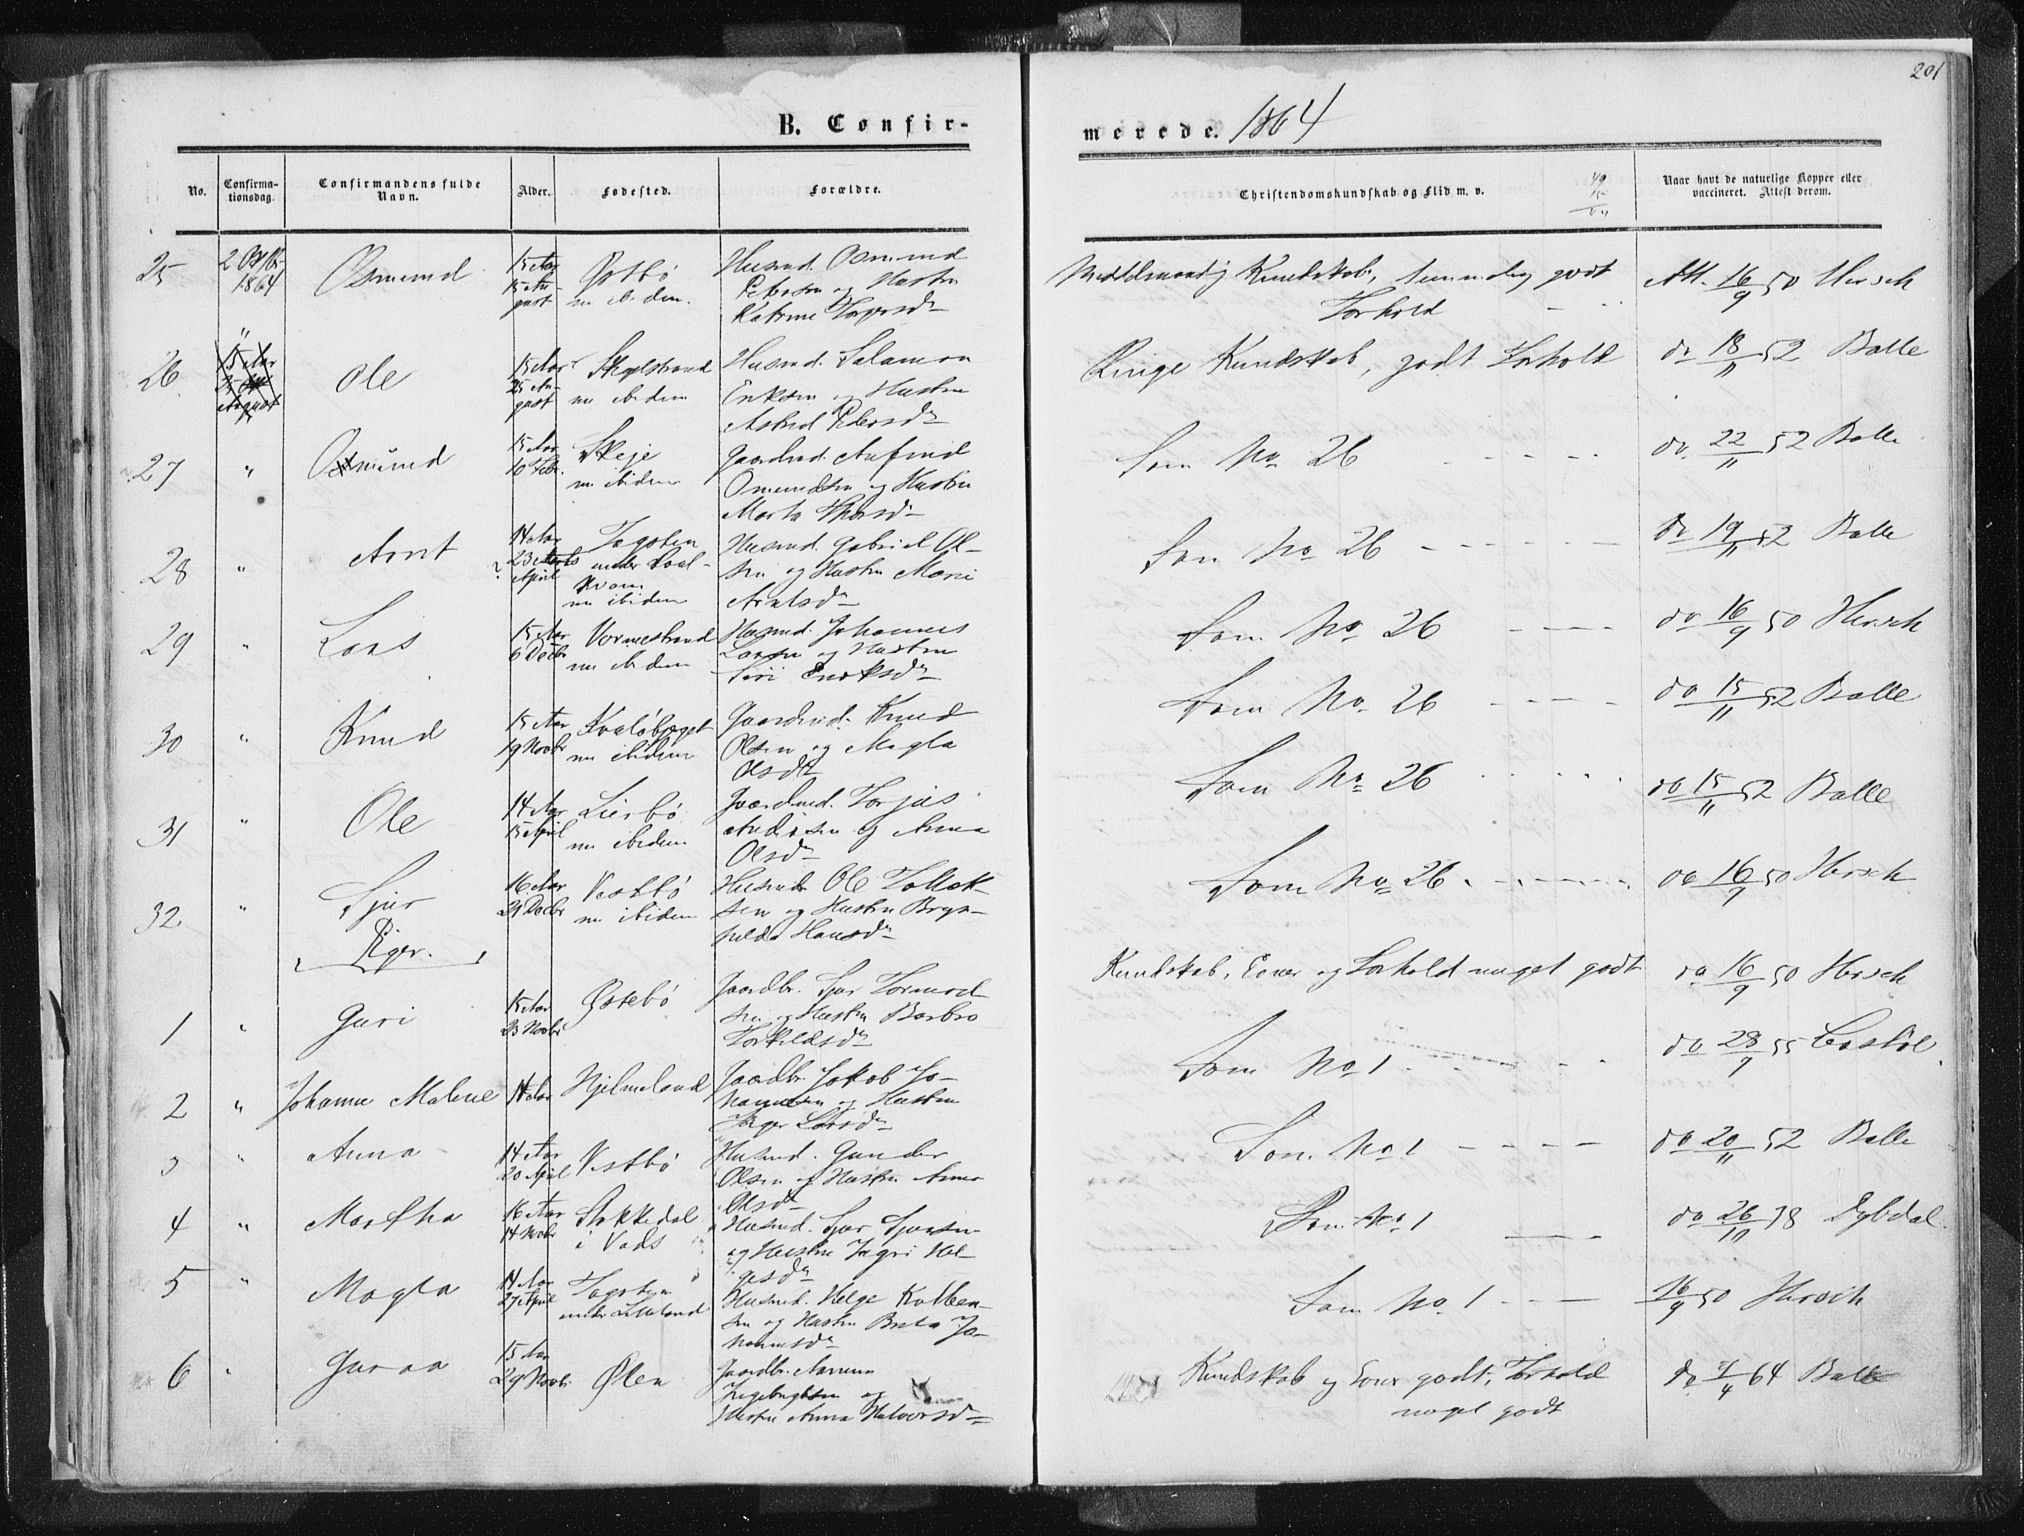 201
B. Confir-
merede. 1864
No.
Confirma-
tionsdag.
Confirmandens fulde
Navn.
Alder.
Fødested.
Forældre.
Christendomskundskab og Flid m. v.
49
15
Naar havt de naturlige Kopper eller
vaccineret. Attest derom.
25
2 Octbr
1864
Osmund
15 Aar
15 Au-
gust
nu ibidem.
Husmd. Osmund
Petersen og Hustru
Katrine
Middelmaadig Kundskab, temmelig godt
Forhold
Att. 16/9 50 Hersch
26
"
15 Aar
25
August
Ole
15 Aar
25 Au-
gust
nu ibidem
Husmd. Salamon
Eriksen og Hustru
Astrid Pedersdr
Ringe Kundskab, godt Forhold
do 18/11 52 Balle
27
"
Osmund
15 Aar
10 Febr.
Skeje
nu ibidem
Gaardmd. Anfind
Omundsen og Hustru
Marta
Som No 26
do. 22/11 52 Balle
28
"
Arnt
14 Aar
23
April
Tagsten
under Kval-
nu ibidem
Husmd. Gabriel Ol-
sen og Hustru Marie
Arntsdr
Som No 26
do 19/11 52 Balle
29
"
Lars
15 Aar
6 Decbr
Vormestrand
nu ibidem
Husmd. Johannes
Larsen og Hustru
Siri Eriksdr
Som No 26
do 16/9 50 Hersch
30
"
Knud
15 Aar
19 Novbr
nu ibidem
Gaardmd. Knud
Olsen og Magla
Olsdr
Som No. 26
do 15/11 52 Balle
31
"
Ole
14 Aar
15 April
Lierbø
nu ibidem
Gaardmd. Torjus
og Anna
Olsdr
Som No 26
do 15/11 52 Balle
32
"
Sjur
16 Aar
29 Decbr
Vestbø
nu ibidem
Husmd. Ole Tollak-
sen og Hustru Bryn-
hilda Hansdr
Som No 26
do 16/9 50 Hersch
Piger.
1
"
Guri
15 Aar
23 Novbr
Østebø
Gaardbr. Sjur Tormod-
sen og Hustru Barbro
Torkildsdr
Kundskab, Evner og Forhold meget godt
do 16/9 50 Hersch
2
"
Johanne Malene
14 Aar
Hjelmeland
Gaardbr. Jakob Jo-
hannesen og Hustru
Inger Larsdr
Som No 1
do 28/9 55
3
"
Anna
14 Aar
20 April
Vestbø
Husmd. Gunder
Olsen og Hustru Anna
Olsdr
Som No 1
do 20/11 52 Balle
4
"
Martha
16 Aar
14 Novbr
Stokkedal
i Vads
Husmd. Sjur Sjursen
og Hustru Ingri Hel-
gesdr
Som No 1
do 26/10 Dybdal
5
"
Magla
14 Aar
27 April
Tagsten
under
Husmd. Helge Kolben-
sen og Hustru Brita Jo-
hannesdr
Som No 1
16/9 50 Hersch
6
"
15 Aar
29 Novbr.
Ølen
Gaardbr.
Ingebrigtsen og
Hustru Anna Halvorsdr
Kundskab og Evner godt, Forhold
meget godt
do 7/4 64 Balle